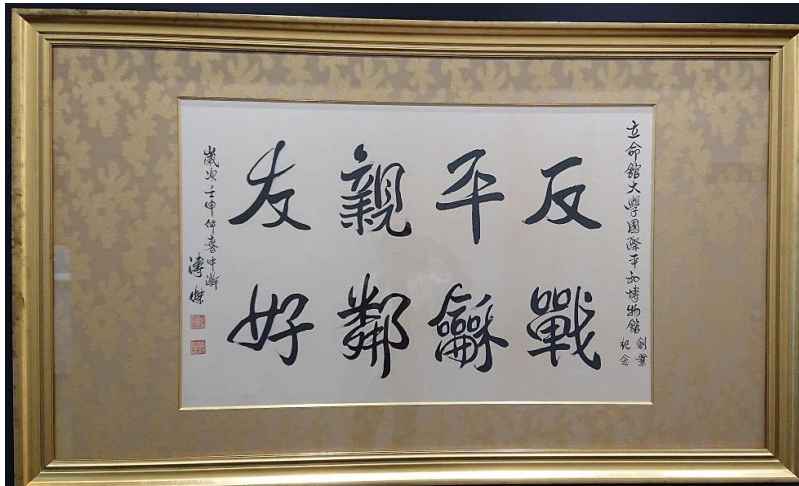 立命館大學國際平和博物館
創業
紀念
反戰
平龢
親鄰
友好
歲次壬申仲春中澣
溥傑